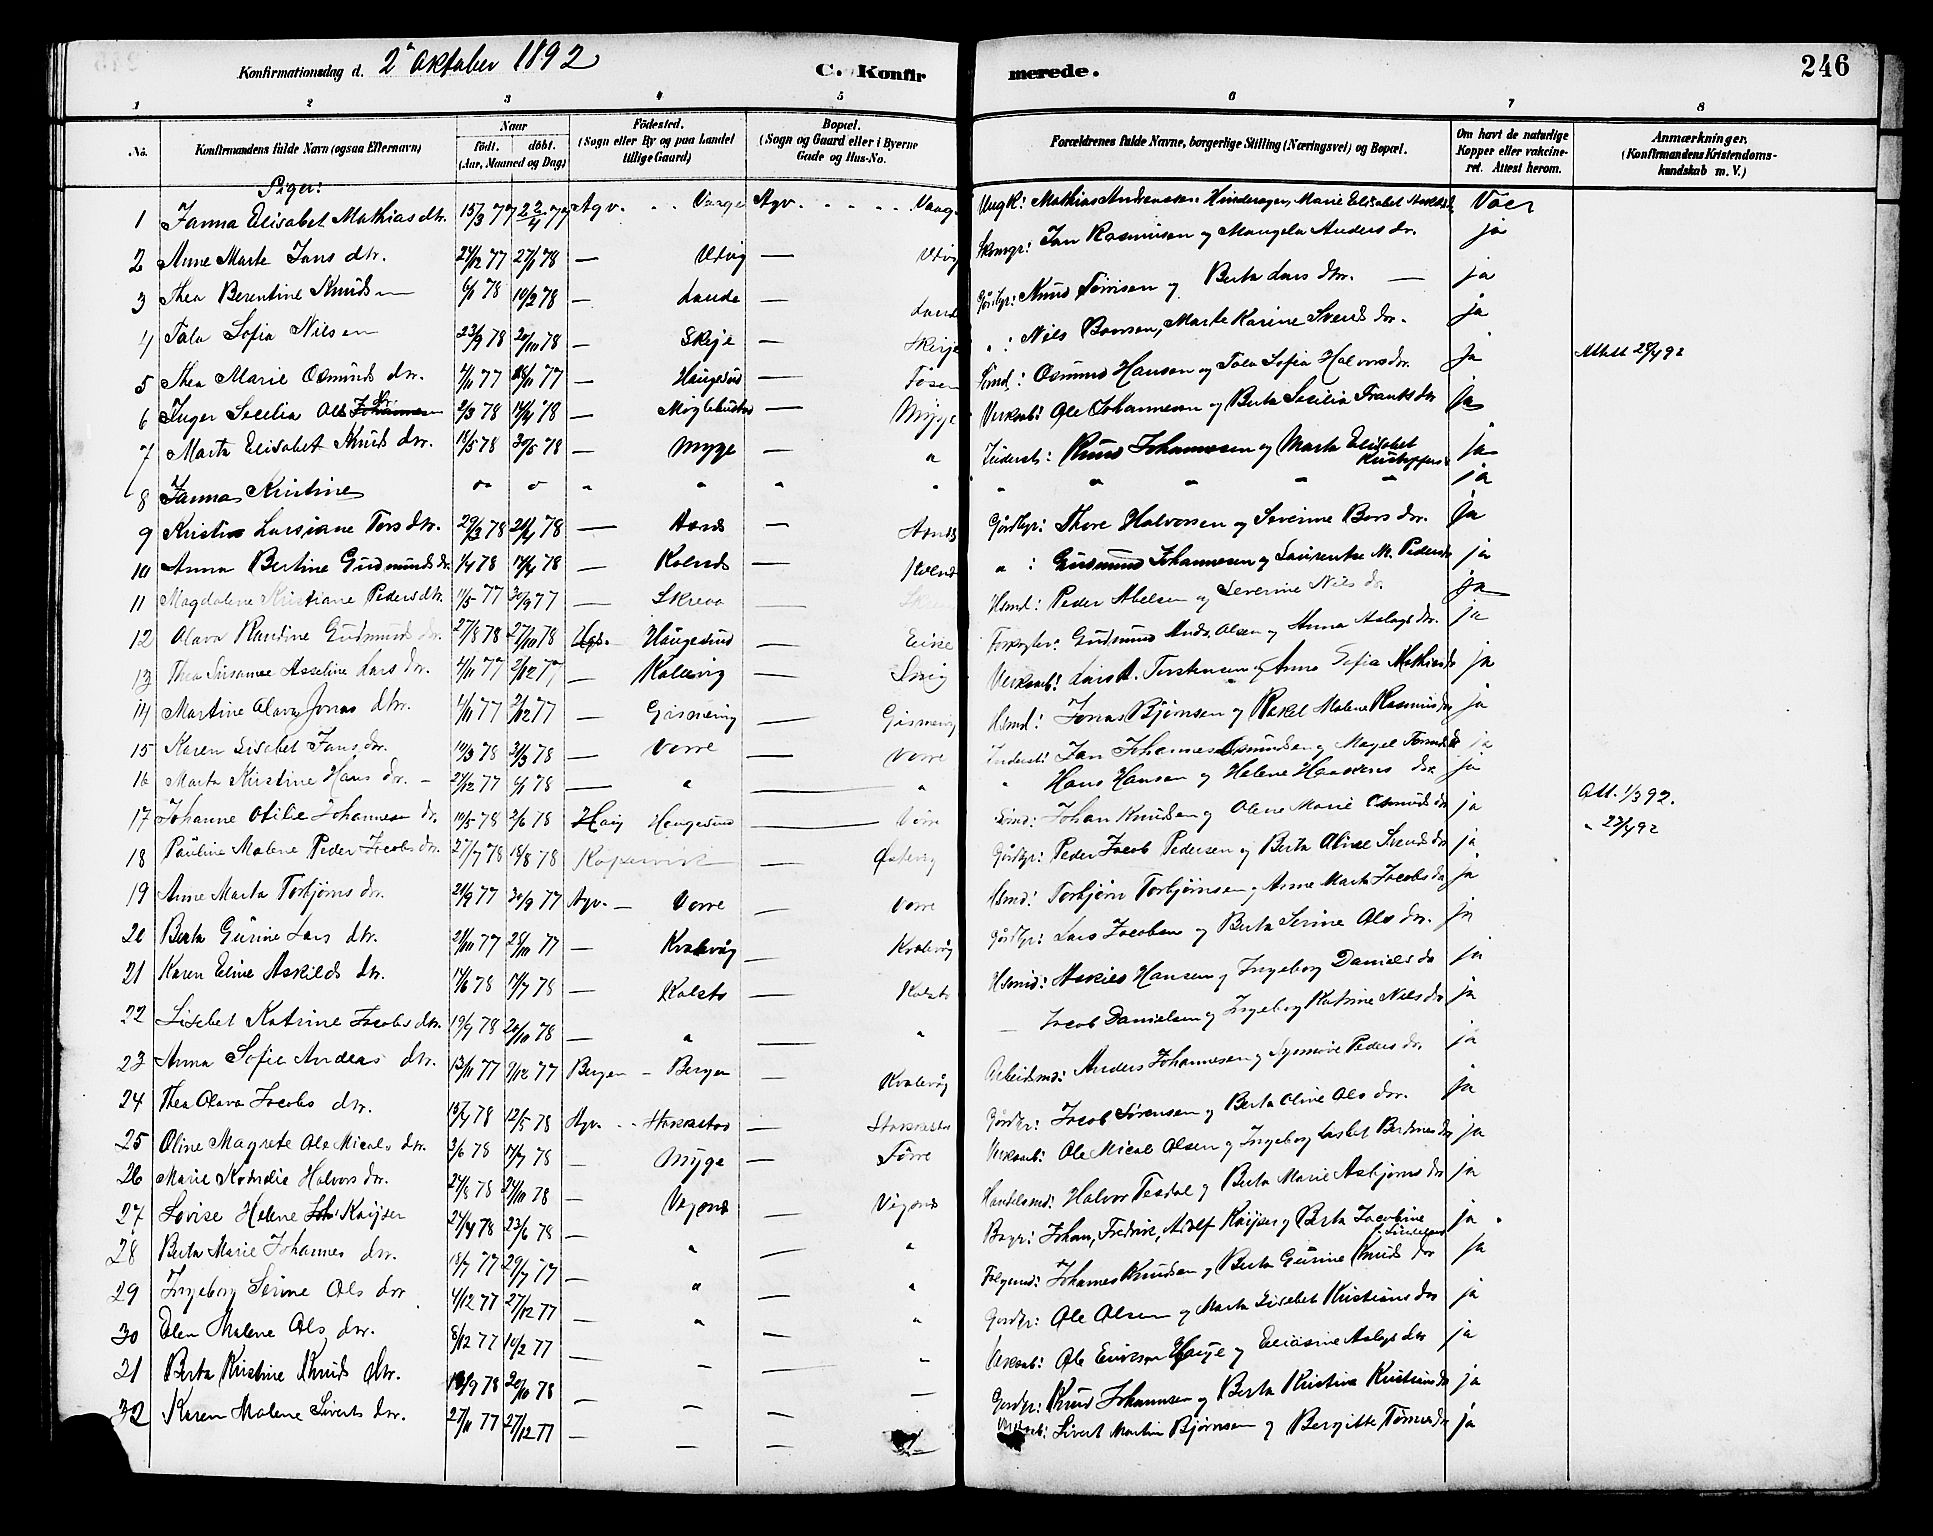 Konfirmationsdag d. 2' Oktober 1892 C. Konfirmerede. 246
1 2 3 4 5 6 7 8
No. Konfirmandens fulde Navn (ogsaa Efternavn) Naar födt. döbt. (Aar, Maaned og Dag) Födested. (Sogn eller By og paa Landet tillige Gaard) Bopæl. (Sogn og Gaard eller i Byerne Gade og Hus-No. Forældrenes fulde Navne, borgerlige Stilling (Næringsvei) og Bopæl. Om havt de naturlige Kopper eller vakcineret. Attest herom. Anmærkninger. (Konfirmandens Kristendomskundskab m. V.)
Piger:
1 Janna Elisabet Mathias dtr. 15/3 77 22/4 77 Agv. Vaage Agv. Vaage Ungk: Mathias Andreassen Marie Elisabet Vacc
2 Anne Marte Jans dtr. 24/12 77 27/1 78 — Utvig — Utvig Jan Rasmussen og Mangela Anders dr. ja
3 Thea Berentine Knudsen 6/1 78 10/2 78 — Lande — Lande Gårdbr: Knud Sörrisen og Berta Lars dtr. — ja
4 Tala Sofia Nilsen 23/9 78 20/10 78 — Skeje — Skeije " : Nils Bonsen, Marte Karine Svends dr. ja
5 Thea Marie Osmunds dtr. 4/11 77 18/11 77 — Haugesund — Osmund Hansen og Tala Sofia Halvors dr. ja Attest 24/9 92
6 Inger Secilia Ols dr. 2/3 78 14/4 78 — — Myge Verksarb: Ole Johannesen og Berta Sesilia Franks dr ja
7 Marta Elisabet Knuds dtr. 11/5 78 30/5 78 — Myge — " Inderst: Knud Johannesen og Marta Elisabet Kristoffers ja
8 Janna Kristine " " " " " " " " " " ja
9 Kristine Larsiane Tors dtr. 29/3 78 21/4 78 — Hands — Hands Gårdbr: Thore Halvorsen og Severine Bors dr. ja
10 Anna Bertine Gudmunds dr. 1/4 78 14/4 78 — Kolnes — " : Gudmund Johannesen og Laurentse M. Peders ja
11 Magdalene Kristiane Peders dtr. 11/5 77 30/9 77 — Skreea — Hsmd: Peder Abelsen og Severine Nils dr. ja
12 Olava Randine Gudmunds dr. 27/8 78 27/10 78 Hgs. Haugesund — Eike Gudmund Andr. Olsen og Anna Aslags dr. ja
13 Thea Susanne Asseline Lars dr. 4/11 77 2/12 77 — Kolevig — Verksarb: Lars A. Torstensen og Anna Sofia Mathias dr ja
14 Martine Olava Jonas dtr. 1/11 77 2/12 77 — Gismervig — Gismervig Hsmd: Jonas Bjørnsen og Rakel Malene Rasmus dr ja
15 Karen Lisebet Jans dr. 10/3 78 31/3 78 — Vorre Vorre Inderst: Jan Johannes Osmundsen og Magel ja
16 Marta Kristine Hans dr. — 21/12 77 6/1 78 — " — " " Hans Hansen og Helene dr. ja
17 Johanne Otilie Johannese dr. 10/5 78 2/6 78 Haug Haugesund — Vorre Johan Knudsen og Olene Marie Osmunds dr ja Att. 1/3 92.
18 Pauline Malene Peder Jacobs dr. 27/7 78 18/8 78 Kopervik — Østevig Gårdbr: Peder Jacob Pedersen og Berta Oline Svends dr ja " 23/4 92
19 Anne Marta Torbjørns dr. 21/9 77 30/9 77 Agv. — Vorre — Vorre Hsmd: Torbjørn Torbjørnsen og Anne Marta Jacobs dr ja
20 Berta Gurine Lars dtr. 21/10 77 28/10 77 — Kvalevåg — Kvalevåg Gårdbr: Lars Jacobsen og Berta Serine Ols dr. ja
21 Karen Eline Askilds dtr. 14/6 78 14/7 78 — Kolstø — Kolstø Hsmd: Askild Hansen og Ingeborg Daniels dr ja
22 Lisebet Katrine Jacobs dtr. 19/9 78 20/10 78 — " — " — Jacob Danielsen og Ingeborg Katrine Nils dr ja
23 Anna Sofie Anders dtr. 13/11 77 9/12 77 Bergen — Bergen — Kvalevåg Arbeidsmd: Anders Johannesen og Synnøve Peders dr. ja
24 Thea Olava Jacobs dtr. 15/4 78 12/5 78 Agv. Stokkastad — Stokkastad Gårdbr: Jacob Sørensen og Berta Oline Ols dr. ja
25 Oline Magrete Ole Micals dr. 2/6 78 14/7 78 — Myge — Førre Verksarb: Ole Mical Olsen og Ingeborg Lisbet Berentines dr ja
26 Marie Kornelie Halvors dr. 24/8 78 24/11 78 — Vigsnes — Vigsnes Handelsmd: Halvor Tesdal og Berta Marie Asbjørns dr ja
27 Lovise Helene Kaijser 24/4 78 23/6 78 — " — " Johan, Fredrik, Adolf Kaijser og Berta Jacobine ja
28 Berta Marie Johannes dtr. 18/7 77 29/7 77 — " — " Johannes Knudsen og Berta Gurine Knuds dr ja
29 Ingeborg Serine Ols dr. 4/12 77 27/12 77 — " — " Gårdbr: Ole Olsen og Marta Lisebet Kristians dr ja
30 Elen Malene Ols dtr. 8/12 77 10/2 77 — — — " Verksarb: Ole Eriksen Hauge og Eliasine Aslags dr ja
31 Berta Kristine Knuds dtr. 19/9 78 20/10 78 — — — — Gårdbr: Knud Johannesen og Berta Kristine Kristians dr ja
32 Karen Malene Siverts dr. 27/11 77 27/12 77 — — — — Verksarb: Sivert Martin Bjørnsen og Bergitte Tønnes dr ja